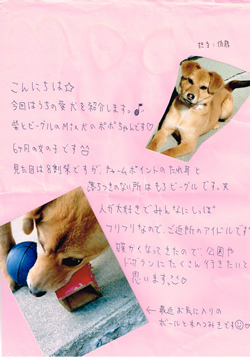 担当:佰務
こんにちは☆
今回はうちの愛犬を紹介します♪
柴とビーグルのMix犬のポポちゃんです♡
6ヶ月の女の子です
見た目は8割柴ですが、チャームポイントのたれ耳と
落ちつきのない所はもろビーグルです。
人が大好きでみんなにしっぽ
フリフリなので、ご近所のアイドルです
暖かくなってきたので、公園や
ドッグランにたくさん行きたいと
思います。
← 最近お気に入りの
ボールと木のつみきです